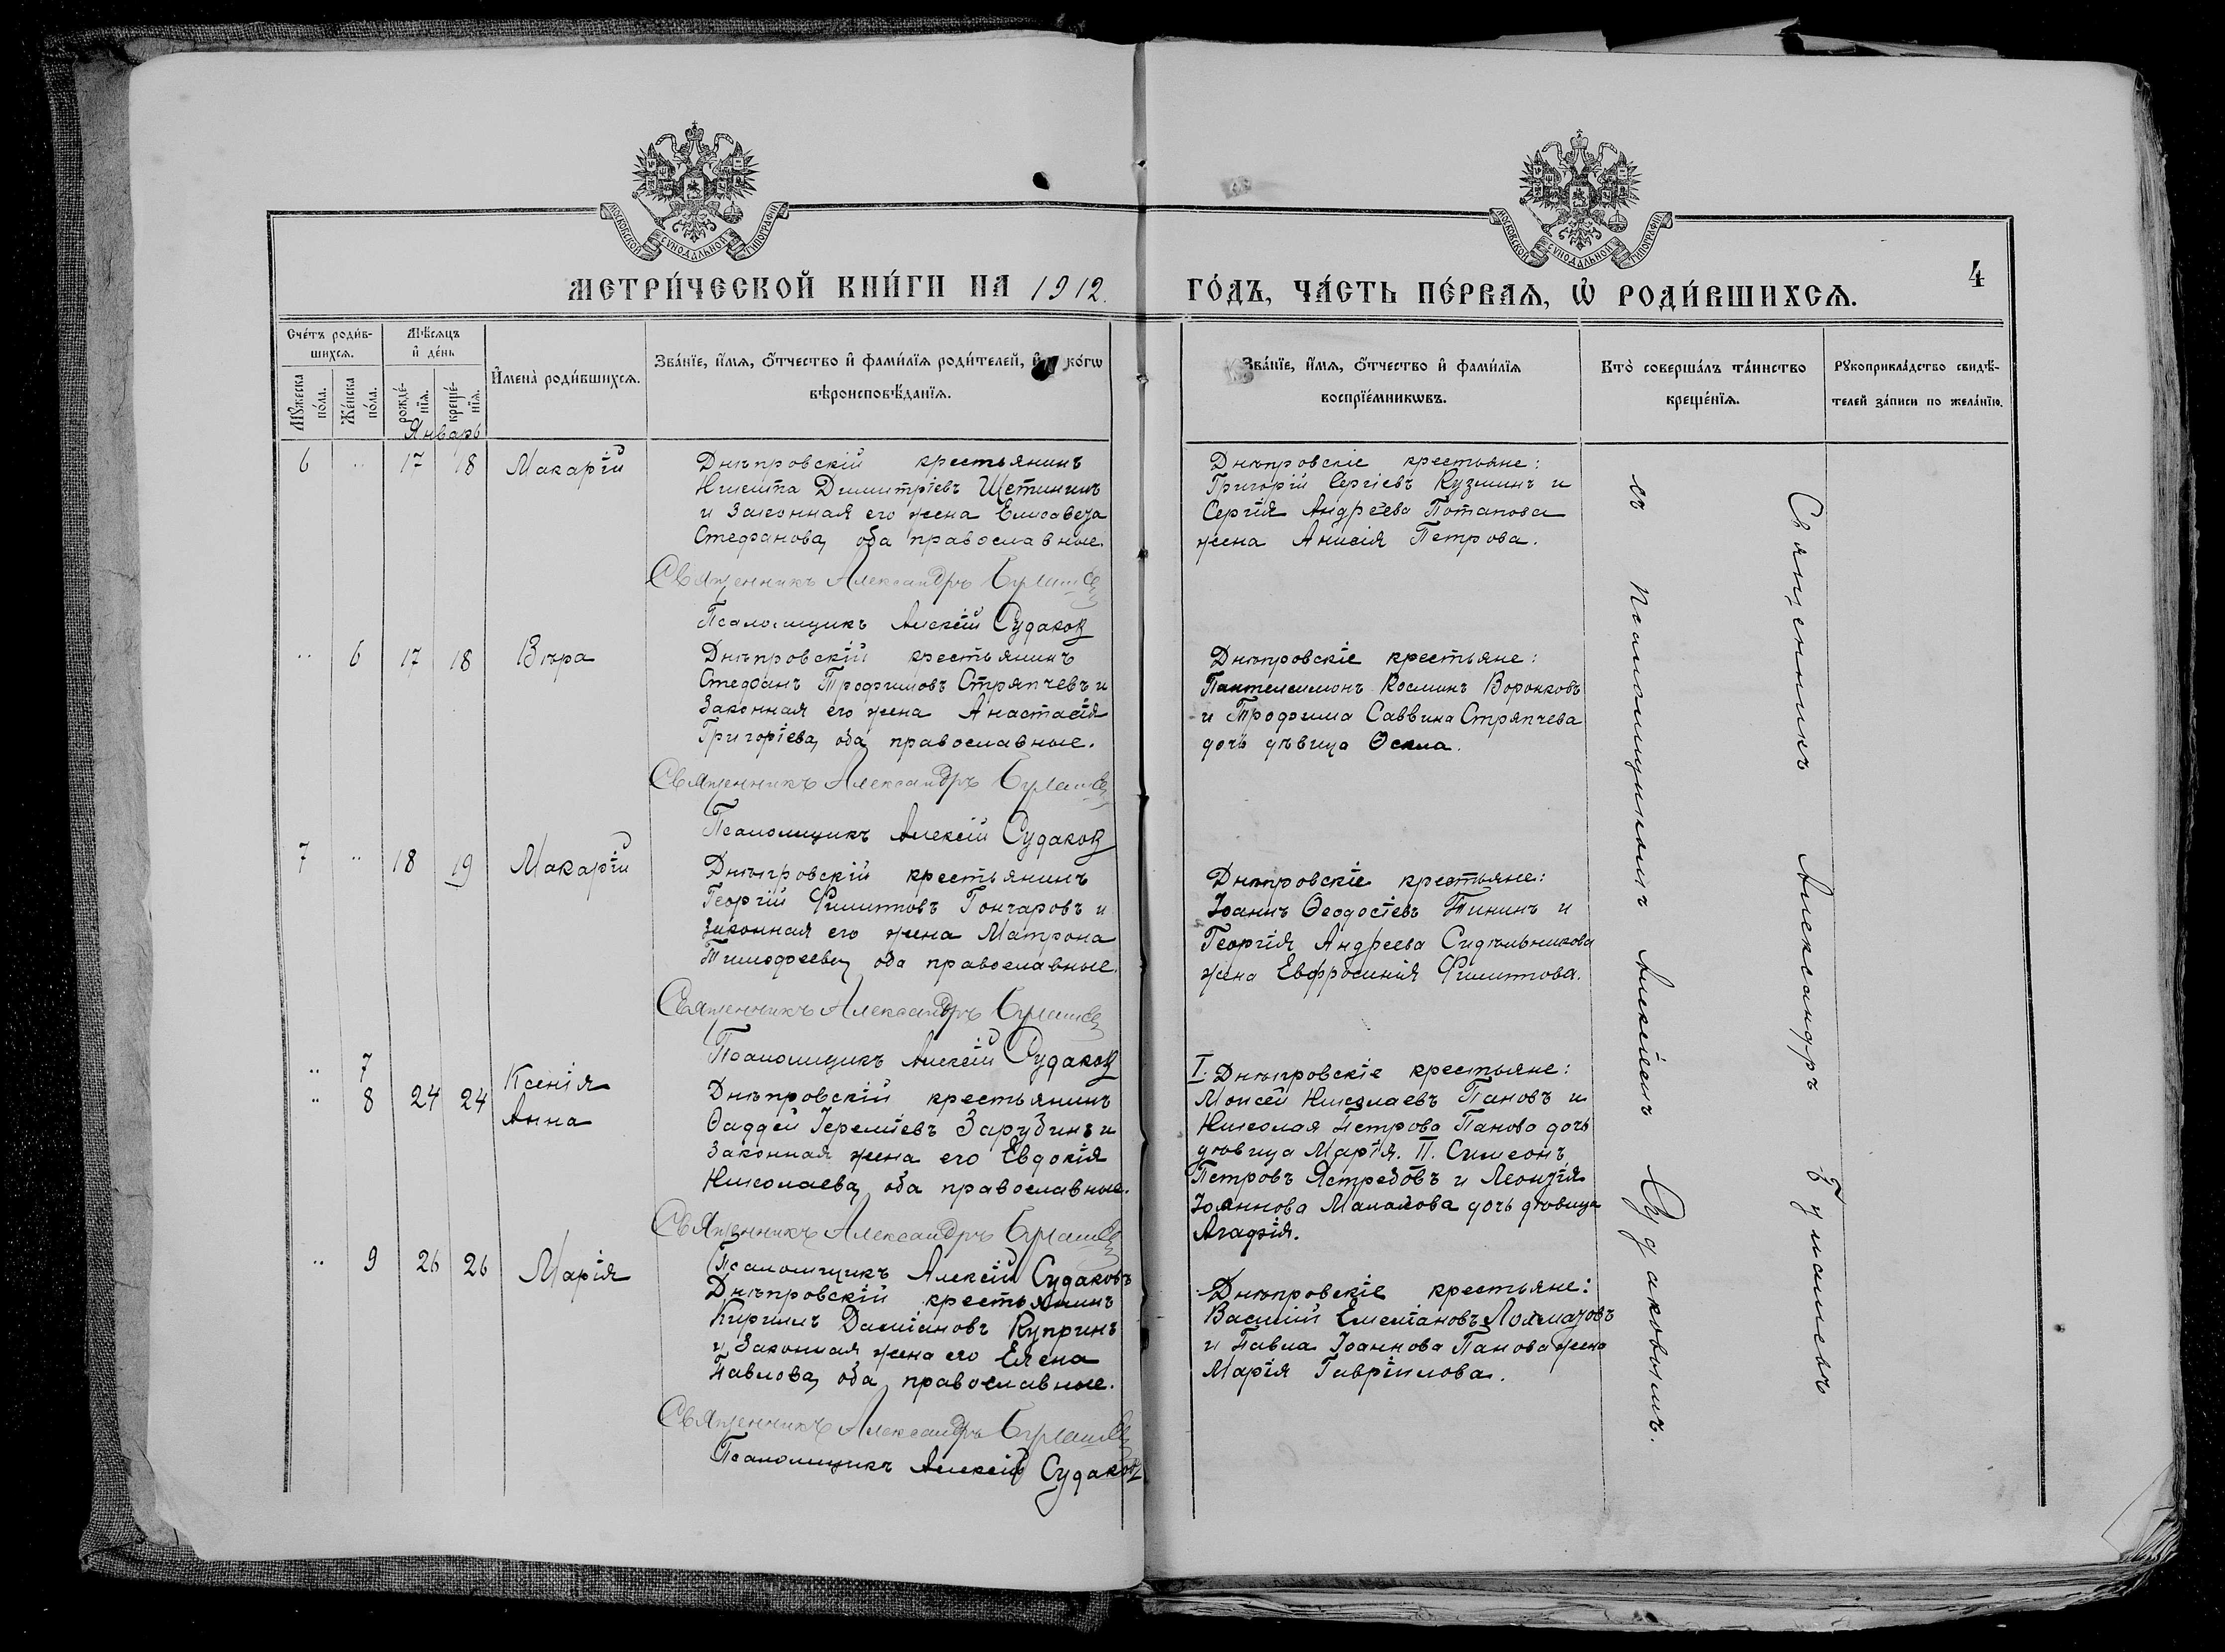 МОСКОВСКОЙ СѴНОДАЛЬНОЙ ТИПОГРАФІИ
МОСКОВСКОЙ СѴНОДАЛЬНОЙ ТИПОГРАФІИ
МЕТРИ́ЧЕСКОЙ КНИ́ГИ НА 1912.
ГО́ДЪ, ЧА́СТЬ ПЕ́РВАѦ, Ѡ҆ РОДИ́ВШИХСѦ.
4
Сче́тъ роди́в-
шихсѧ.
Мѣ́сѧцъ
и҆ де́нь
Мꙋ́жеска
по́ла.
Же́нска
по́ла.
рожде́-
нїѧ.
креще́-
нїѧ.
И҆мена̀ роди́вшихсѧ.
Зва́нїе, и҆́мѧ, ѻ҆́тчество и҆ фами́лїѧ роди́телей, и҆ ко́гѡ
вѣроисповѣ́данїѧ.
Зва́нїе, и҆́мѧ, ѻ҆́тчество и҆ фами́лїѧ
воспрїе́мникѡвъ.
Кто̀ соверша́лъ та́инство
креще́нїѧ.
Рꙋкоприкла́дство свидѣ́-
телей за́писи по жела́нїю.
Январь
6 .. 17 18 Макарій
Днѣпровскій крестьянинъ
Никита Димитріевъ Щетининъ
и законная его жена Елисавета
Стефанова, оба православные.
Священникъ Александръ
Псаломщикъ Алексій Судаковъ
Днѣпровскіе крестьяне:
Григорій Сергіевъ Кузминъ и
Сергія Андреева Потапова
жена Анисія Петрова.
.. 6 17 18 Вѣра
Днѣпровскій крестьянинъ
Стефанъ Трофимовъ Стряпчевъ и
законная его жена Анастасія
Григоріева, оба православные.
Священникъ Александръ
Псаломщикъ Алексій Судаковъ
Днѣпровскіе крестьяне:
Пантелеимонъ Косминъ Воронковъ
и Трофима Саввина Стряпчева
дочь дѣвица Ѳекла.
7 .. 18 19 Макарій
Днѣпровскій крестьянинъ
Георгій Филиповъ Гончаровъ и
законная его жена Матрона
Тимофеева, оба православные.
Священникъ Александръ
Псаломщикъ Алексій Судаковъ
Днѣпровскіе крестьяне:
Іоаннъ Ѳеодосіевъ Тининъ и
Георгія Андреева Сидѣльникова
жена Евфросинія Филиппова.
.. 7 Ксенія
.. 8 24 24 Анна
Днѣпровскій крестьянинъ
Ѳаддей Іереміевъ Зарубинъ и
законная жена его Евдокія
Николаева, оба православные.
Священникъ Александръ
Псаломщикъ Алексій Судаковъ
I. Днѣпровскіе крестьяне:
Моисей Николаевъ Пановъ и
Николая Петрова Панова дочь
дѣвица Марія. II. Симеонъ
Петровъ Ястребовъ и Леонтія
Іоаннова дочь дѣвица
Агафія.
.. 9 26 26 Марія
Днѣпровскій крестьянинъ
Кириллъ Даміановъ Купринъ
и законная жена его Елена
Павлова, оба православные.
Священникъ Александръ
Псаломщикъ Алексій Судаковъ
Днѣпровскіе крестьяне:
Василій Емеліановъ
и Павла Іоаннова Панова жена
Марія Гавріилова.
Священникъ Александръ
съ псаломщикомъ Алексіемъ Судаковымъ.